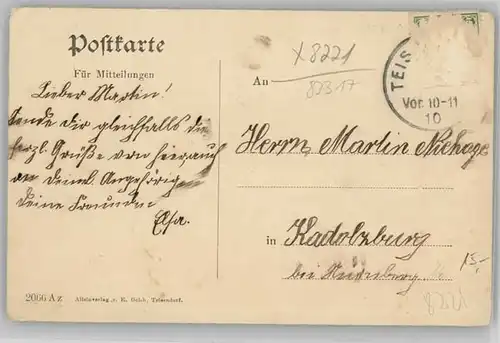 Postkarte
Für Mitteilungen
Lieber Martin!
Sende dir gleichfalls die
herzl. Grüße von hier auch
an deine l. Angehörigen
deine Freundin
Elsa.
2066 Az Alleinverlag v. Teisendorf.
An
x8221
82317
TEIS
Vor. 10-11
10
Herrn Martin
in Kadolzburg
bei Nürnberg
15.-
8221